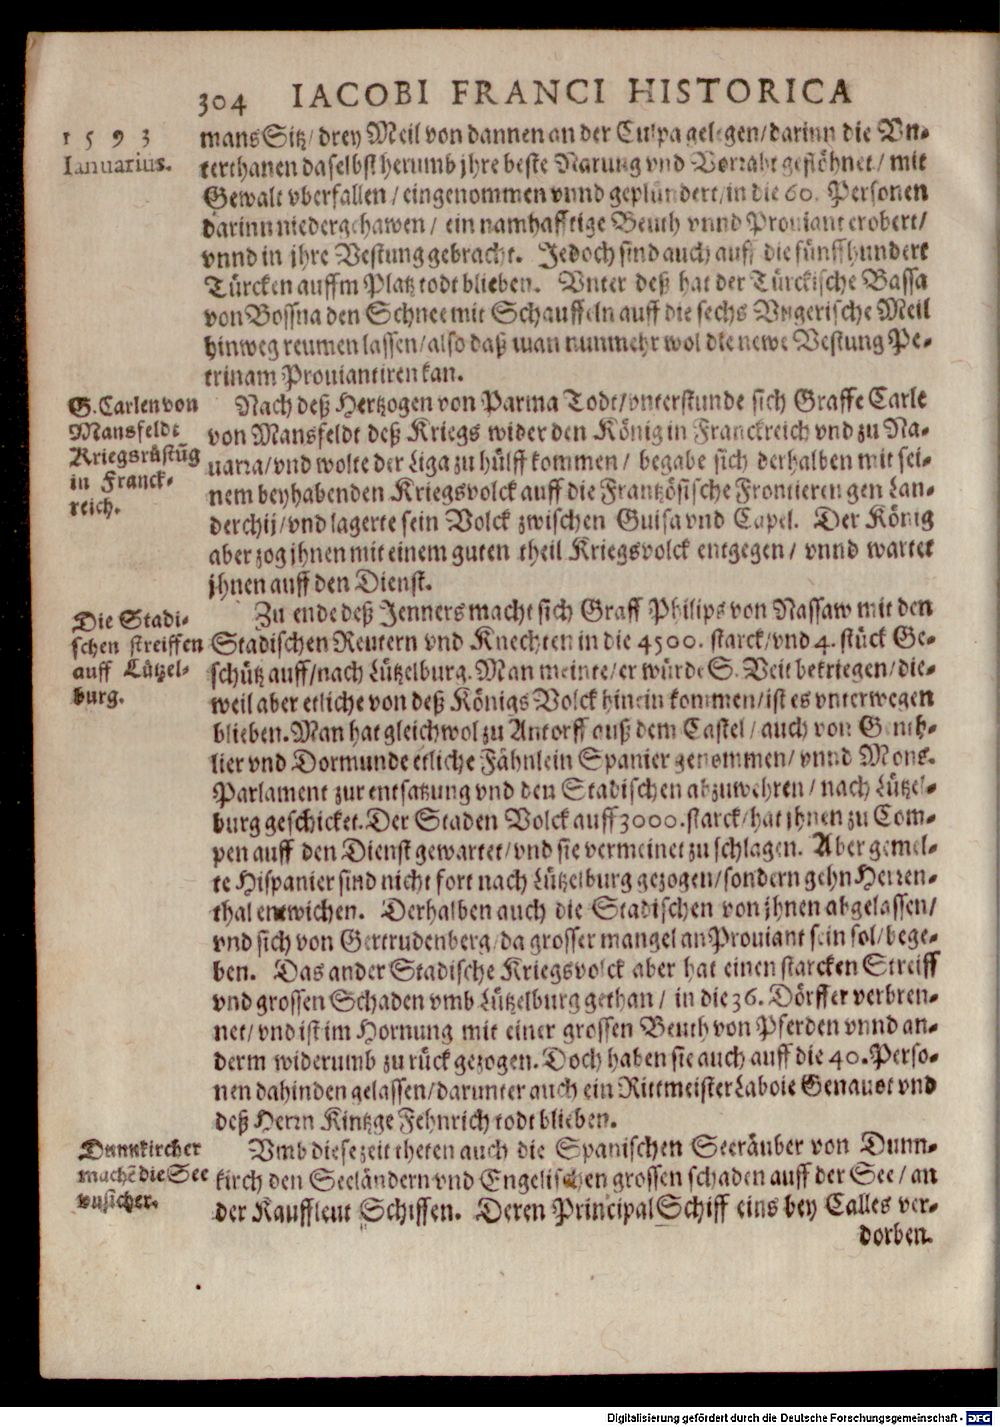 304 IACOBI FRANCI HISTORICA
1593
Ianuarius.
mans Sitz/ drey Meil von dannen an der Culpa gelegen/ darinn die Vn-
terthanen daselbst herumb jhre beste Narung vnd Vorraht geflöhnet/ mit
Gewalt vberfallen/ eingenommen vnnd geplündert/ in die 60. Personen
darinn niedergehawen/ ein namhafftige Beuth vnnd Prouiant erobert/
vnnd in jhre Vestung gebracht. Jedoch sind auch auff die fünffhundert
Türcken auffm Platz todt blieben. Vnter deß hat der Türckische Bassa
von Bossna den Schnee mit Schauffeln auff die sechs Vngerische Meil
hinweg reumen lassen/ also daß man nunmehr wol die newe Vestung Pe-
trinam Prouiantiren kan.
G. Carlen von
Mansfeldt
Kriegsrüstũg
in Franck-
reich.
Nach deß Hertzogen von Parma Todt/ vnterstunde sich Graffe Carle
von Mansfeldt deß Kriegs wider den König in Franckreich vnd zu Na-
uarra/ vnd wolte der Liga zu hülff kommen/ begabe sich derhalben mit sei-
nem beyhabenden Kriegsvolck auff die Frantzösische Frontieren gen Lan-
derchij/ vnd lagerte sein Volck zwischen Guisa vnd Capel. Der König
aber zog jhnen mit einem guten theil Kriegsvolck entgegen/ vnnd wartet
jhnen auff den Dienst.
Die Stadi-
schen streiffen
auff Lützel-
burg.
Zu ende deß Jenners macht sich Graff Philips von Nassaw mit den
Stadischen Reutern vnd Knechten in die 4500. starck/ vnd 4. stück Ge-
schütz auff/ nach Lützelburg. Man meinte/ er würde S. Veit bekriegen/ die-
weil aber etliche von deß Königs Volck hinein kommen/ ist es vnterwegen
blieben. Man hat gleichwol zu Antorff auß dem Castel/ auch von
lier vnd Dormunde etliche Fähnlein Spanier genommen/ vnnd Mons.
Parlament zur entsatzung vnd den Stadischen abzuwehren/ nach Lützel-
burg geschicket. Der Staden Volck auff 3000. starck/ hat jhnen zu Com-
pen auff den Dienst gewartet/ vnd sie vermeinet zu schlagen. Aber gemel-
te Hispanier sind nicht fort nach Lützelburg gezogen/ sondern gehn Herren-
thal entwichen. Derhalben auch die Stadischen von jhnen abgelassen/
vnd sich von Gertrudenberg/ da grosser mangel an Prouiant sein sol/ bege-
ben. Das ander Stadische Kriegsvolck aber hat einen starcken Streiff
vnd grossen Schaden vmb Lützelburg gethan/ in die 36. Dörffer verbren-
net/ vnd ist im Hornung mit einer grossen Beuth von Pferden vnnd an-
derm widerumb zu rück gezogen. Doch haben sie auch auff die 40. Perso-
nen dahinden gelassen/ darunter auch ein Rittmeister Laboie Genauot vnd
deß Herrn Kintzge Fehnrich todt blieben.
Dunnkircher
machẽ die See
vnsicher.
Vmb diese zeit theten auch die Spanischen Seeräuber von Dunn-
kirch den Seeländern vnd Engelischen grossen schaden auff der See/ an
der Kauffleut Schiffen. Deren Principal Schiff eins bey Calles ver-
dorben.
Digitalisierung gefördert durch die Deutsche Forschungsgemeinschaft - DFG